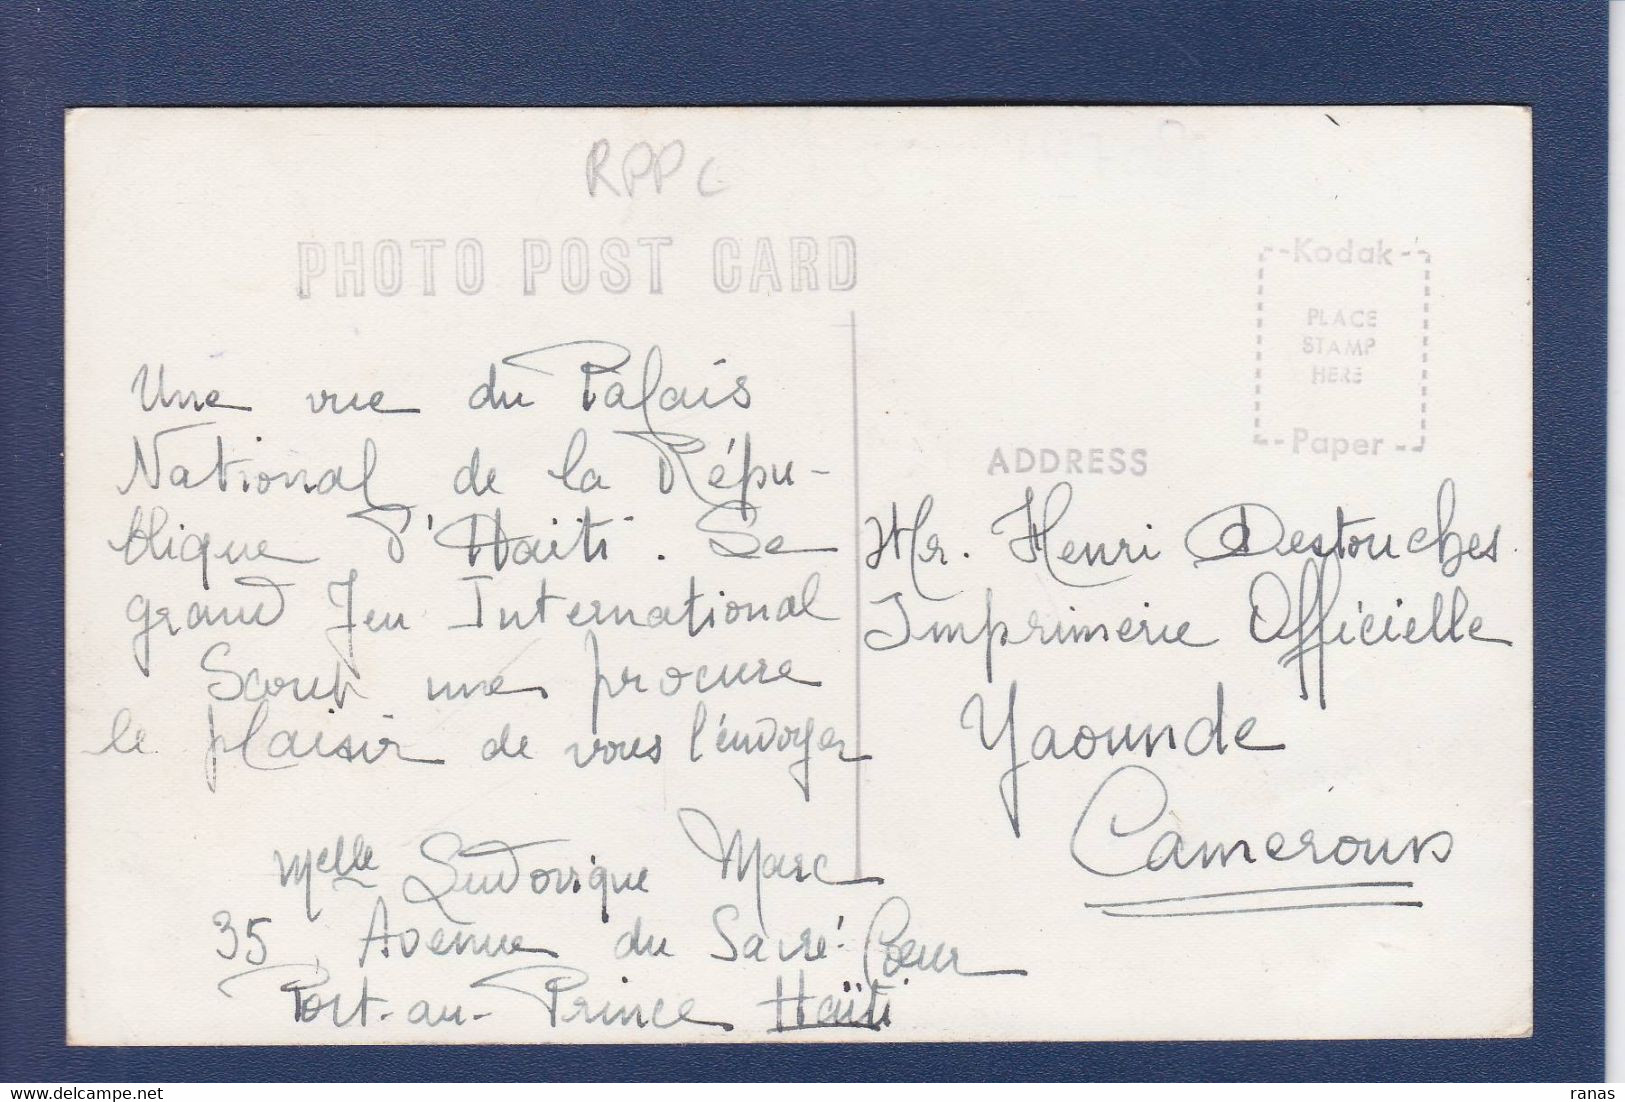 RPPC
PHOTO POST CARD
Une vue du Palais
National de la Répu-
blique d'Haïti. Le
grand Jeu International
Scout me procure
le plaisir de vous l'envoyer
Melle Ludovique Marc
35, Avenue du Sacré-Coeur
Port-au-Prince Haïti
Kodak
PLACE
STAMP
HERE
Paper
ADDRESS
Mr. Henri Destouches
Imprimerie Officielle
Yaounde
Cameroun
ranas